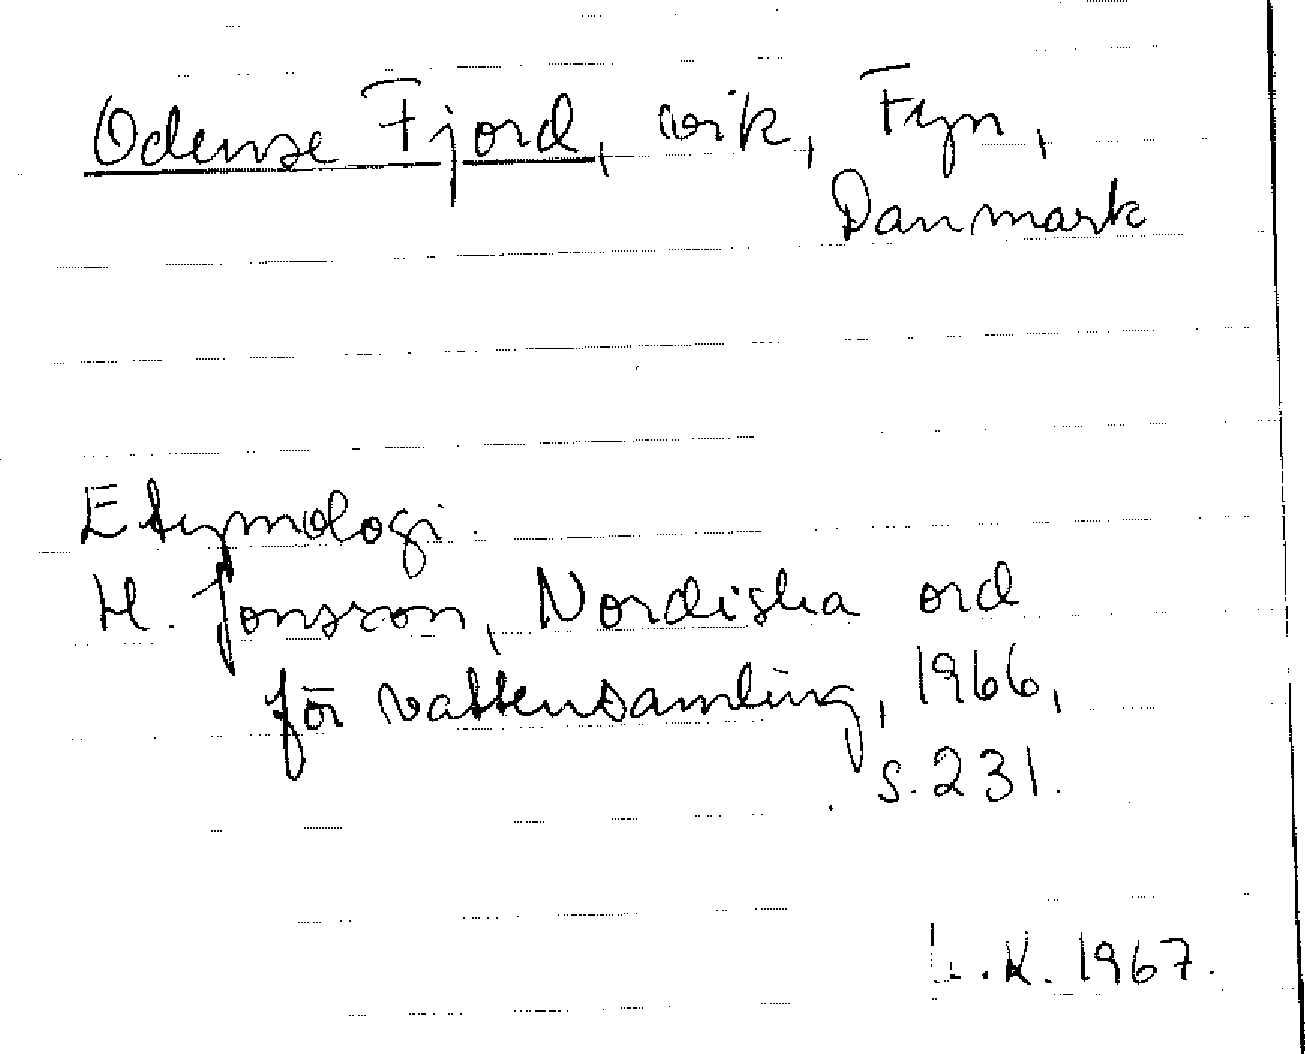 Odense Fjord, vik, Fyn,
Danmark
Etymologi.
H. Jonsson, Nordiska ord
för vattensamling, 1966,
s. 231.
L.K. 1967.